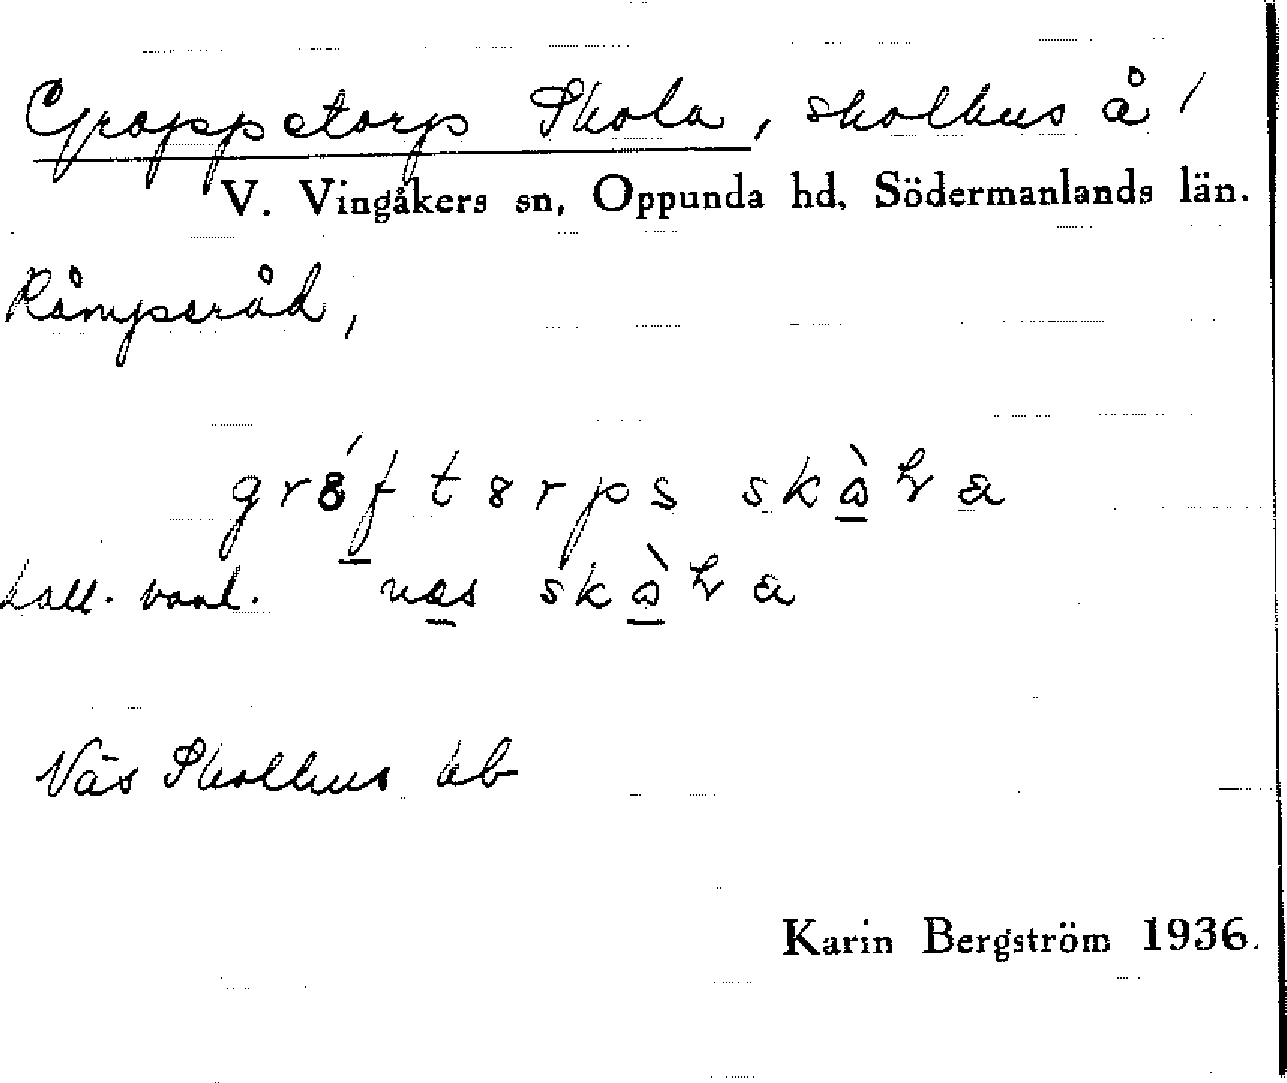 Groppetorp Skola, skolhus å
V. Vingåkers sn, Oppunda hd, Södermanlands län.
Rämpsråd,
gr8́ft8rps skàla
kall. vanl. nas skàla
Väs Skolhus kb
Karin Bergström 1936.